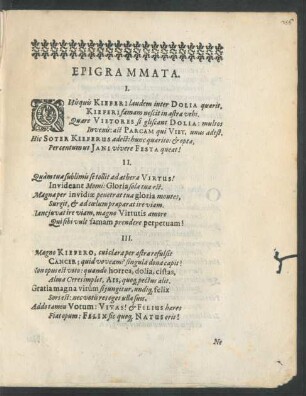 EPIGRAMMATA.
I.
QUò quis KIEFERI laudem inter DOLIA quærit,
KIEFERI famam nescit in astra vehi.
Quare VIETORES si gliscant DOLIA: multos
Invenis: ast PARCAM qui VIET, unus adest.
Hic SOTER KIEFERUS adest: hunc quærito: & opta,
Per centum ut JANI vivere FESTA queat!
II.
Quàm tua sublimis se tollit ad æthera VIRTUS!
Invideant Momi: Gloria sola tua est.
Magna per invidiæ penetrat tua gloria montes,
Surgit, & ad cœlum præparat ire viam.
Sanè juvat ire viam, magno Virtutis amore
Qui sibi vult famam prendere perpetuam!
III.
Magne KIEFERO, cui clara per astra refulsit
CANCER; quid voveam? singula dona capis!
Con opus est voto: quando horrea, dolia, cistas,
Alma Ceres implet, AES, quoq; pectus alit.
Gratia magna virûm si jungitur, undiq; felix
Sors est: nec votis res eget ulla suis.
Addo tamen Votum: VIVAS! & FILIUS hæres
Fiat opum: FELIX sit quoq; NATUS erit!
Ne